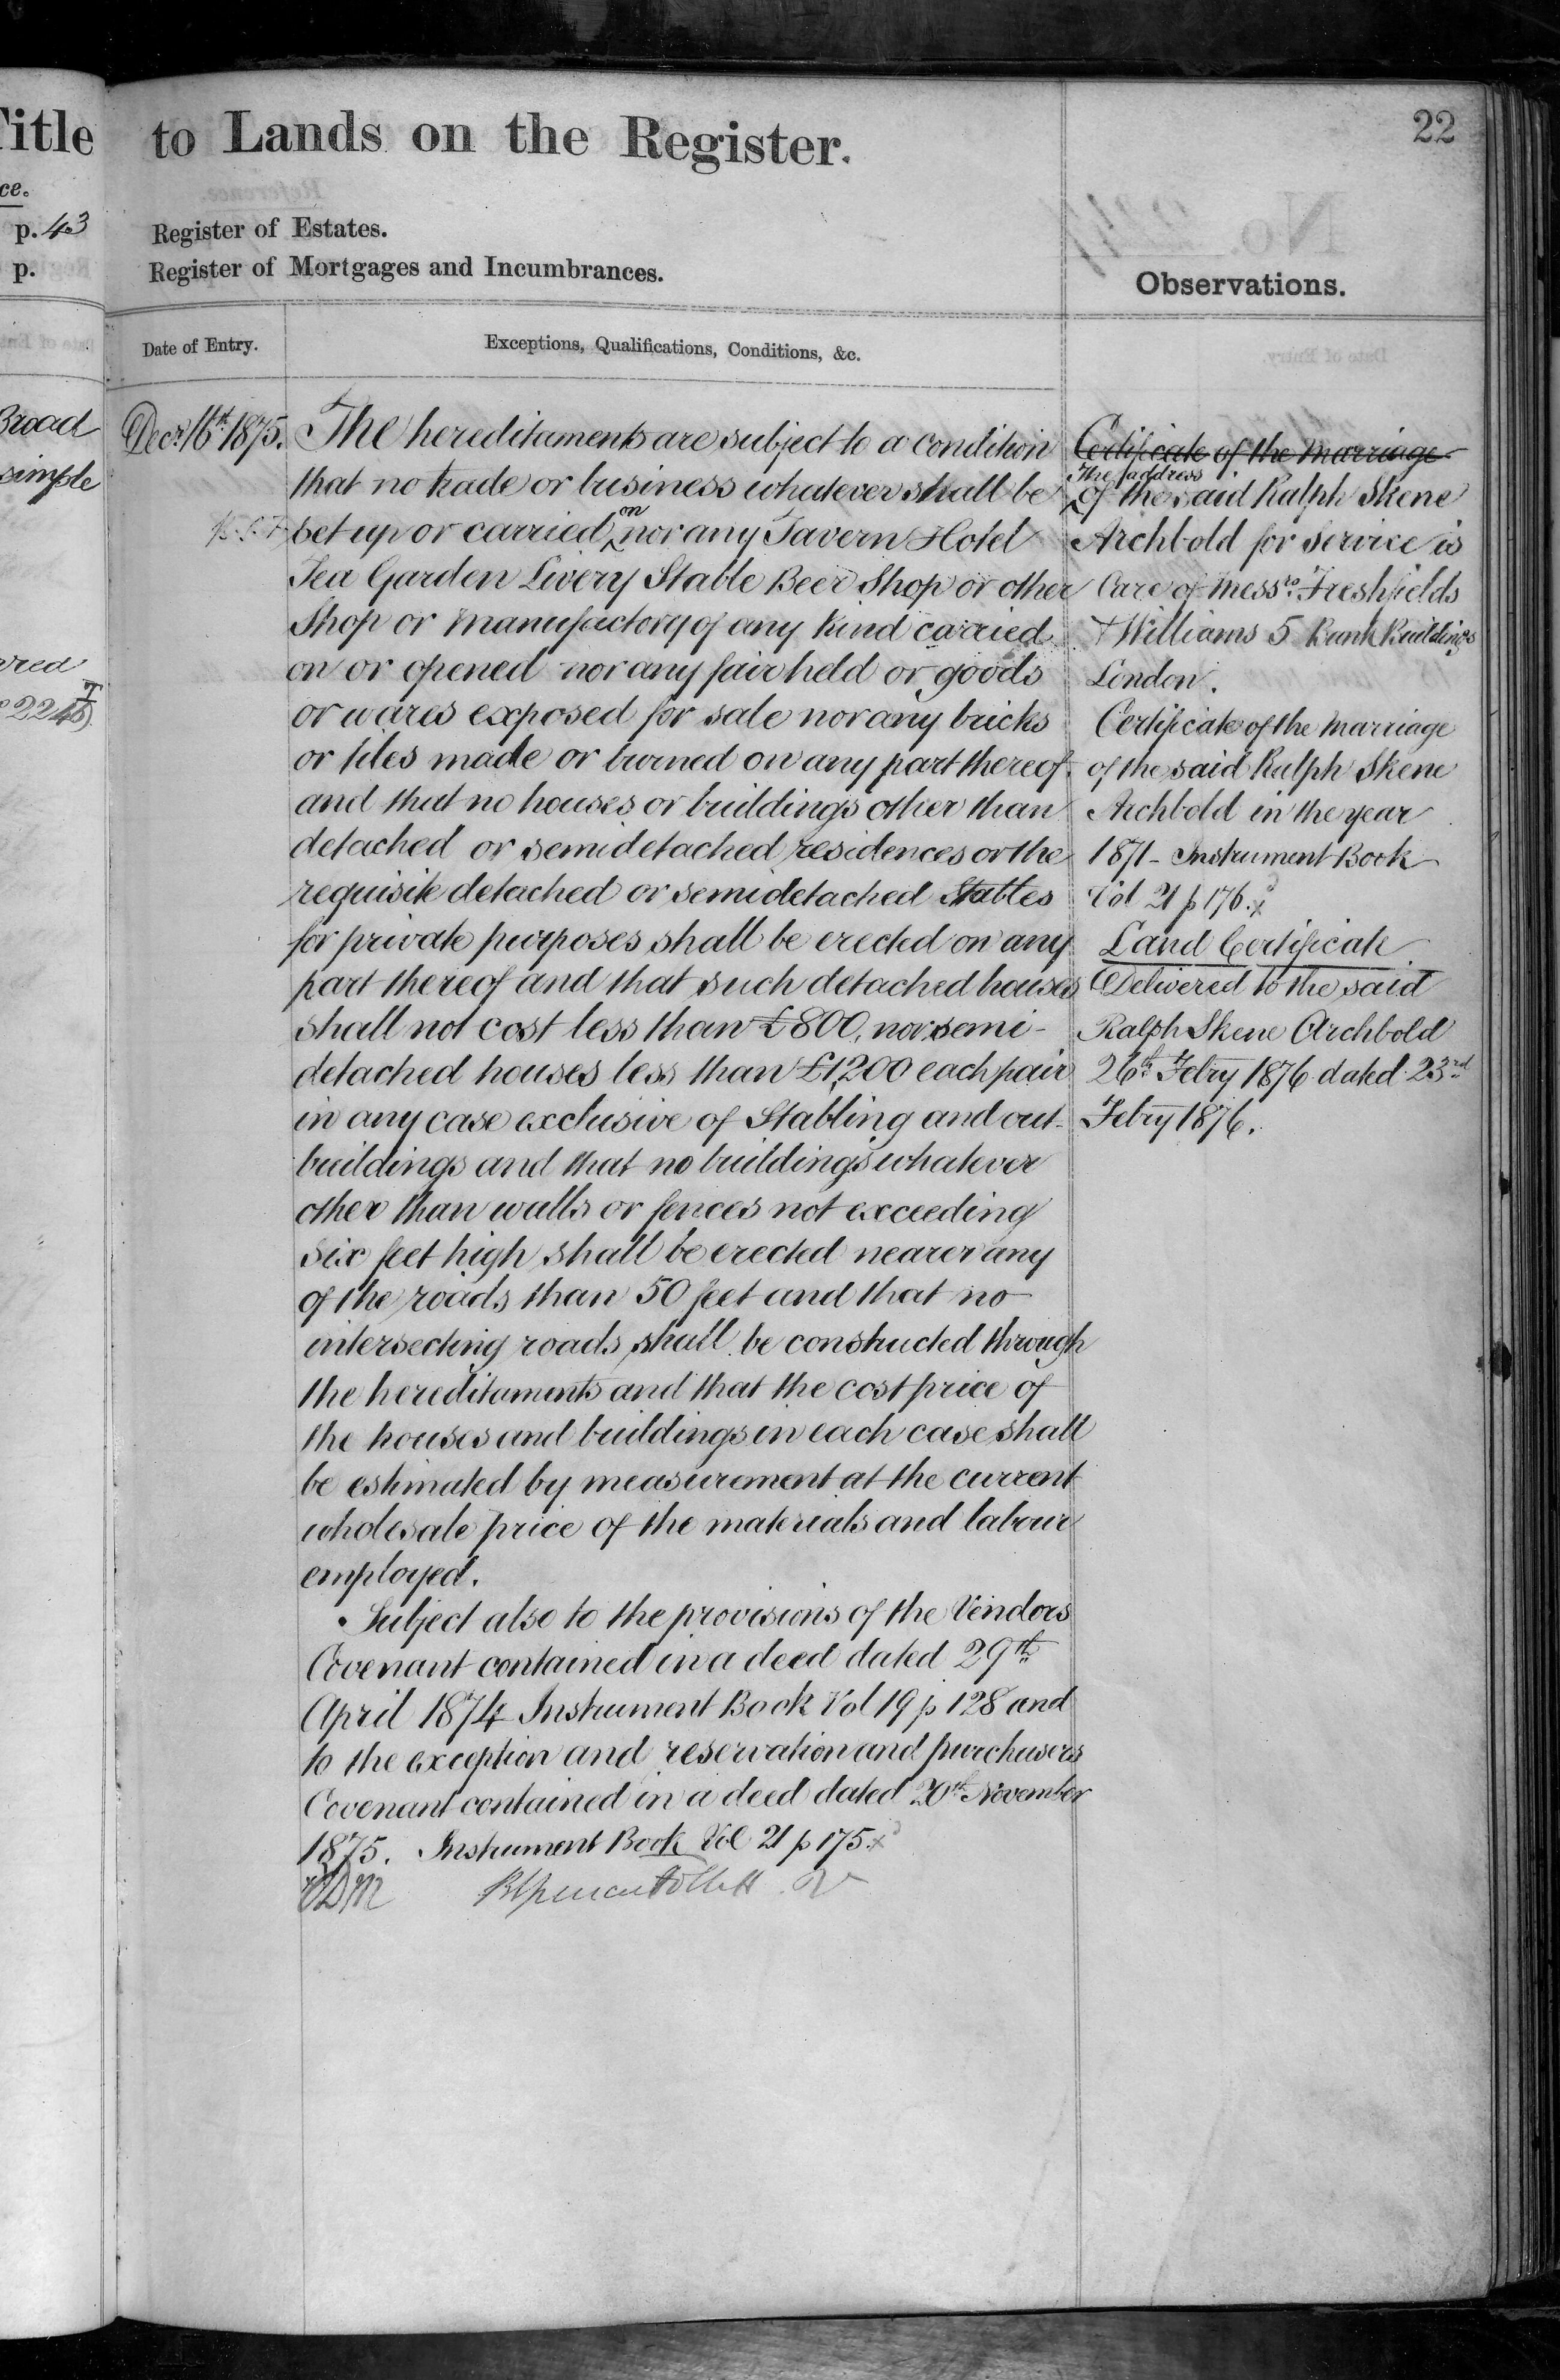 Title
ce.
p. 43
p.
Broad
simple
to Lands on the Register.
22
Register of Estates.
Register of Mortgages and Incumbrances.
Observations.
Date of Entry.
Exceptions, Qualifications, Conditions, &c.
Decr. 16th 1875.
The hereditaments are subject to a condition
that no trade or business whatever shall be
set up or carried on nor any Tavern Hotel
Tea Garden Livery Stable Beer Shop or other
Shop or manufactory of any kind carried
on or opened nor any fair held or goods
or wares exposed for sale nor any bricks
or tiles made or burned on any part thereof.
and that no houses or buildings other than
detached or semidetached residences or the
requisite detached or semidetached Stables
for private purposes shall be erected on any
part thereof and that such detached houses
shall not cost less than £800, nor semi-
detached houses less than £1,200 each pair
in any case exclusive of Stabling and out-
buildings and that no buildings whatever
other than walls or fences not exceeding
six feet high shall be erected nearer any
of the roads than 50 feet and that no
intersecting roads shall be constructed through
the hereditaments and that the cost price of
the houses and buildings in each case shall
be estimated by measurement at the current
wholesale price of the materials and labour
employed.
Subject also to the provisions of the Vendors
Covenant contained in a deed dated 29th
April 1874 Instrument Book Vol 19 p 128 and
to the exception and reservation and purchasers
Covenant contained in a deed dated 20th November
1875. Instrument Book Vol 21 p 175.x
Certificate of the marriage
The address
of the said Ralph Skene
Archbold for service is
Care of Messrs. Freshfields
& Williams 5 Bank Buildings
London.
Certificate of the marriage
of the said Ralph Skene
Archbold in the year
1871 - Instrument Book
Vol 21 p 176.x
Land Certificate
Delivered to the said
Ralph Skene Archbold
26th Febry 1876 dated 23rd
Febry 1876.